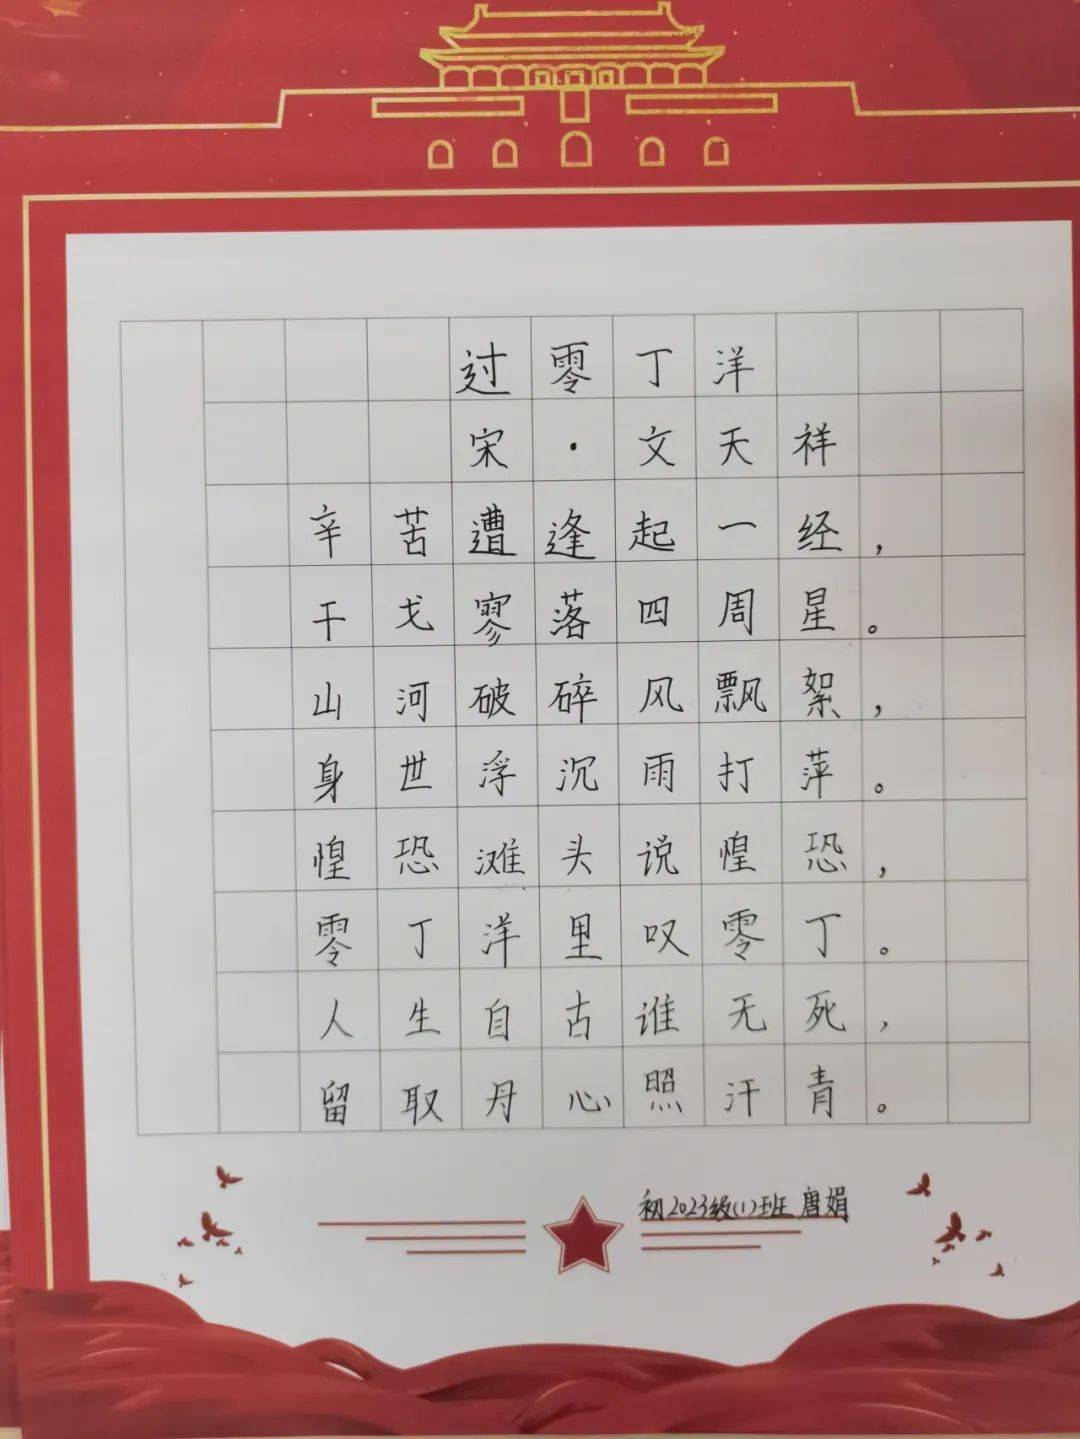 过零丁洋
宋·文天祥
辛苦遭逢起一经，
干戈寥落四周星。
山河破碎风飘絮，
身世浮沉雨打萍。
惶恐滩头说惶恐，
零丁洋里叹零丁。
人生自古谁无死，
留取丹心照汗青。
初2023级(1)班 唐娟